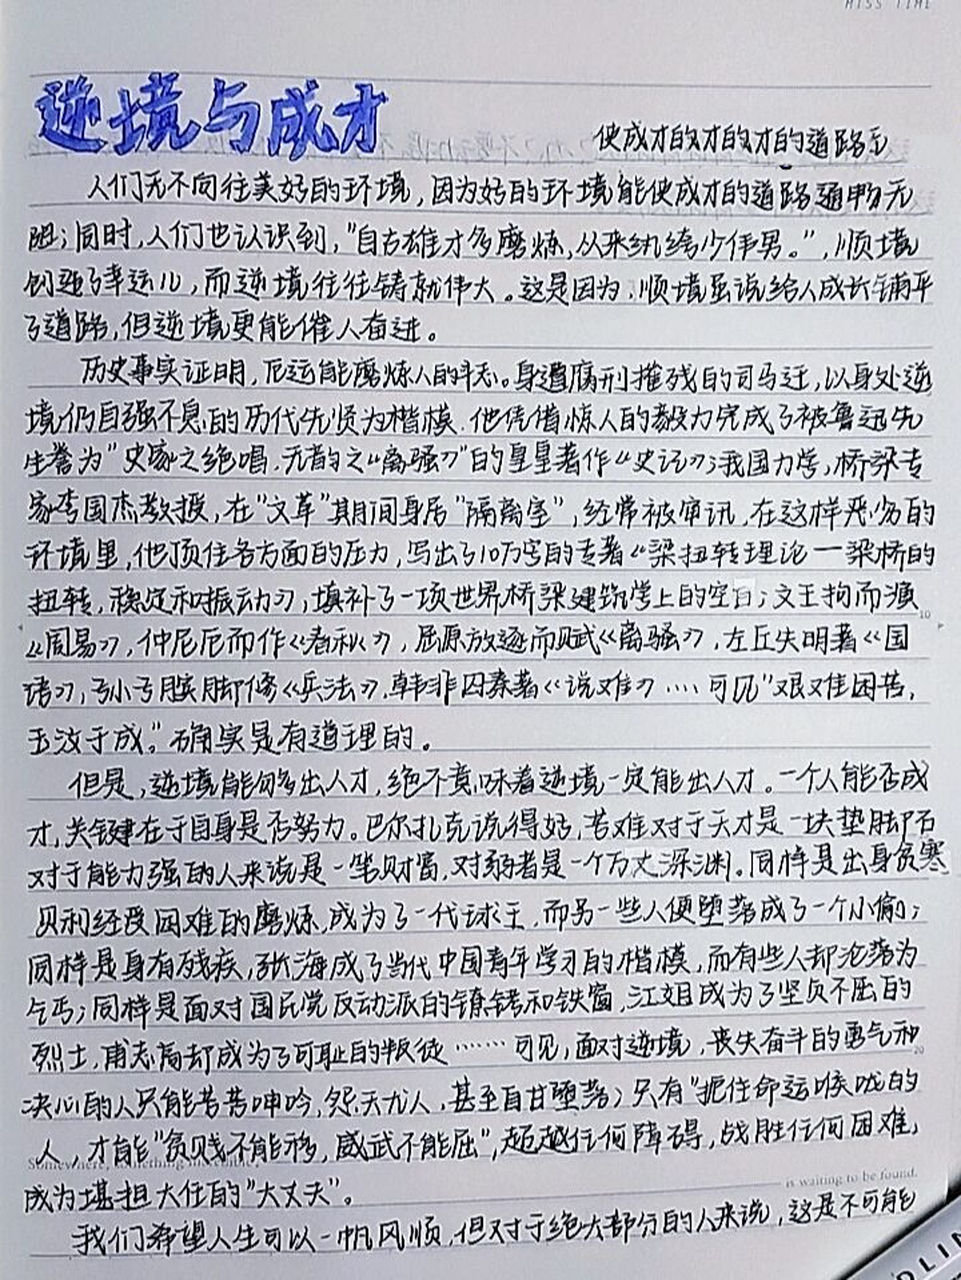 MISS TIME
逆境与成才
使成才的才的才的才的道路至
人们无不向往美好的环境，因为好的环境能使成才的道路通畅无
阻；同时，人们也认识到，"自古雄才多磨炼，从来纨绔少伟男。"，顺境
创造了幸运儿，而逆境往往铸就伟大。这是因为，顺境虽说给人成长铺平
了道路，但逆境更能催人奋进。
历史事实证明，厄运能磨炼人的斗志。身遭腐刑摧残的司马迁，以身处逆
境仍自强不息的历代先贤为楷模，他凭借惊人的毅力完成了被鲁迅先
生誉为"史家之绝唱，无韵之《离骚》"的皇皇著作《史记》；我国力学，桥梁专
家李国杰教授，在"文革"其期间身居"隔离室"，经常被审讯，在这样恶劣的
环境里，他顶住各方面的压力，写出了10万字的专著《梁扭转理论——梁桥的
扭转，稳定和振动》，填补了一项世界桥梁建筑学上的空白；文王拘而演
《周易》，仲尼厄而作《春秋》，屈原放逐而赋《离骚》，左丘失明著《国
语》，孙子膑脚修《兵法》，韩非囚秦著《说难》....可见"艰难困苦，
玉汝于成。"确实是有道理的。
但是，逆境能够多出人才，绝不意味着逆境一定能出人才。一个人能否成
才，关键在于自身是否努力。巴尔扎克说得好，苦难对于天才是一块垫脚石
对于能力强的人来说是一笔财富，对弱者是一个万丈深渊。同样是出身贫寒
贝利经受困难的磨炼，成为了一代球王，而另一些人便堕落成了一个小偷；
同样是身有残疾，张海成了当代中国青年学习的楷模，而有些人却沦落为
乞丐；同样是面对国民党反动派的镣铐和铁窗，江姐成为了坚贞不屈的
烈士，甫志高却成为了可耻的叛徒……可见，面对逆境，丧失奋斗的勇气和
决心的人只能苦苦呻吟，怨天尤人，甚至自甘堕落；只有"扼住命运喉咙的
人，才能"贫贱不能移，威武不能屈"，超越任何障碍，战胜任何困难，
Somewhere, something incredible
is waiting to be found.
成为堪担大任的"大丈夫"。
我们希望人生可以一帆风顺，但对于绝大部分的人来说，这是不可能
10
20